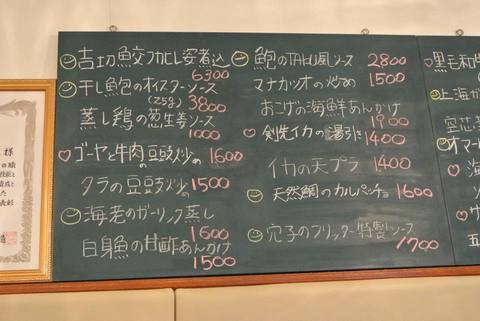 吉切鮫フカヒレ姿煮込
6300
干し鮑のオイスターソース
(25g) 3800
蒸し鶏の葱生姜ソース
1000
ゴーヤと牛肉の豆豉炒め 1600
タラの豆豉炒め 1500
海老のガーリック蒸し
1600
白身魚の甘酢あんかけ
1500
鮑の風ソース 2800
マナガツオの炒め 1500
おこげの海鮮あんかけ
1900
剣先イカの湯引き
1400
イカの天プラ 1400
天然鯛のカルパッチョ 1600
穴子のフリッター特製ソース
1700
黒毛和
上海
空芯
オマール
海
ソ
ウ
五
様
の職
表彰